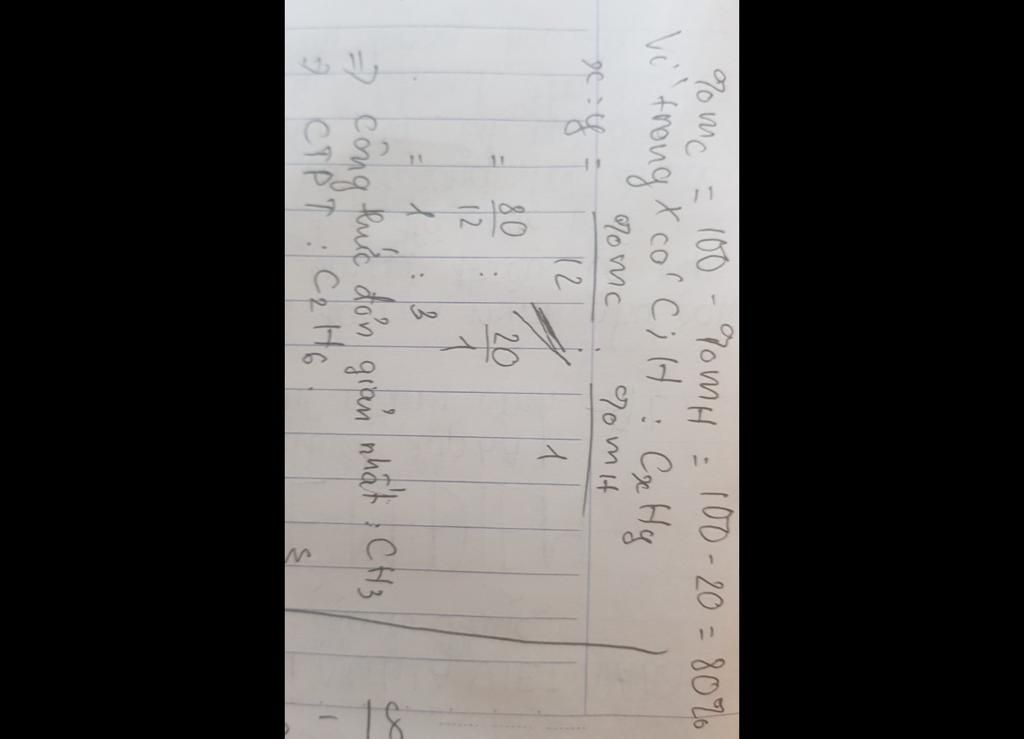 %mC = 100 - %mH = 100 - 20 = 80%
Vì trong X có C, H : CxHy
x : y = %mC/12 : %mH/1
= 80/12 : 20/1
= 1 : 3
=> công thức đơn giản nhất : CH3
=> CTPT : C2H6.